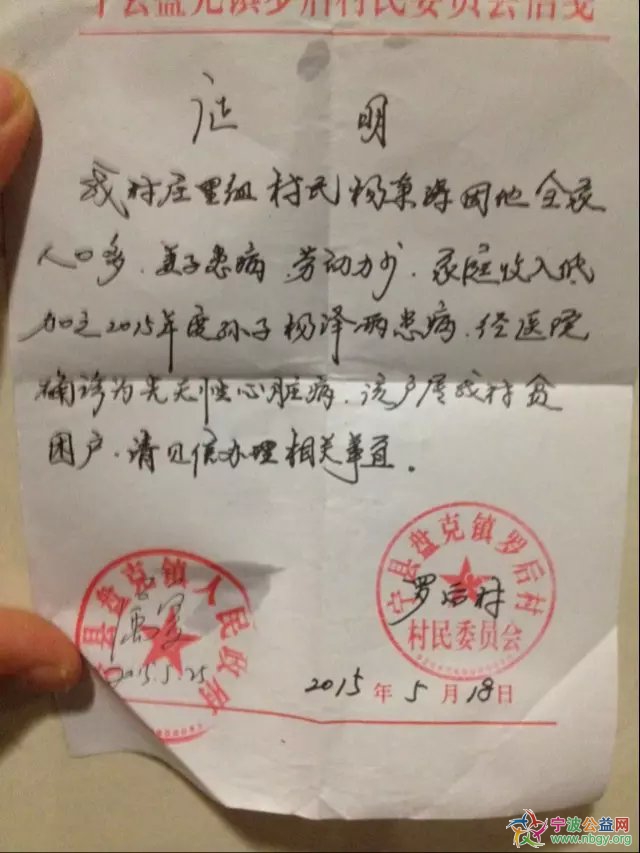 宁县盘克镇罗后村民委员会信笺
证明
我村庄里组村民杨東峰因他全家
人口多、妻子患病、劳动力少、家庭收入低
加之2015年度孙子杨泽雨患病、经医院
确诊为先天性心脏病、该户属我村贫
困户、请见信办理相关事宜。
宁县盘克镇罗后村
罗后村
村民委员会
县盘克镇人民政府
2015.5.25
2015年5月18日
宁波公益网
www.nbgy.org